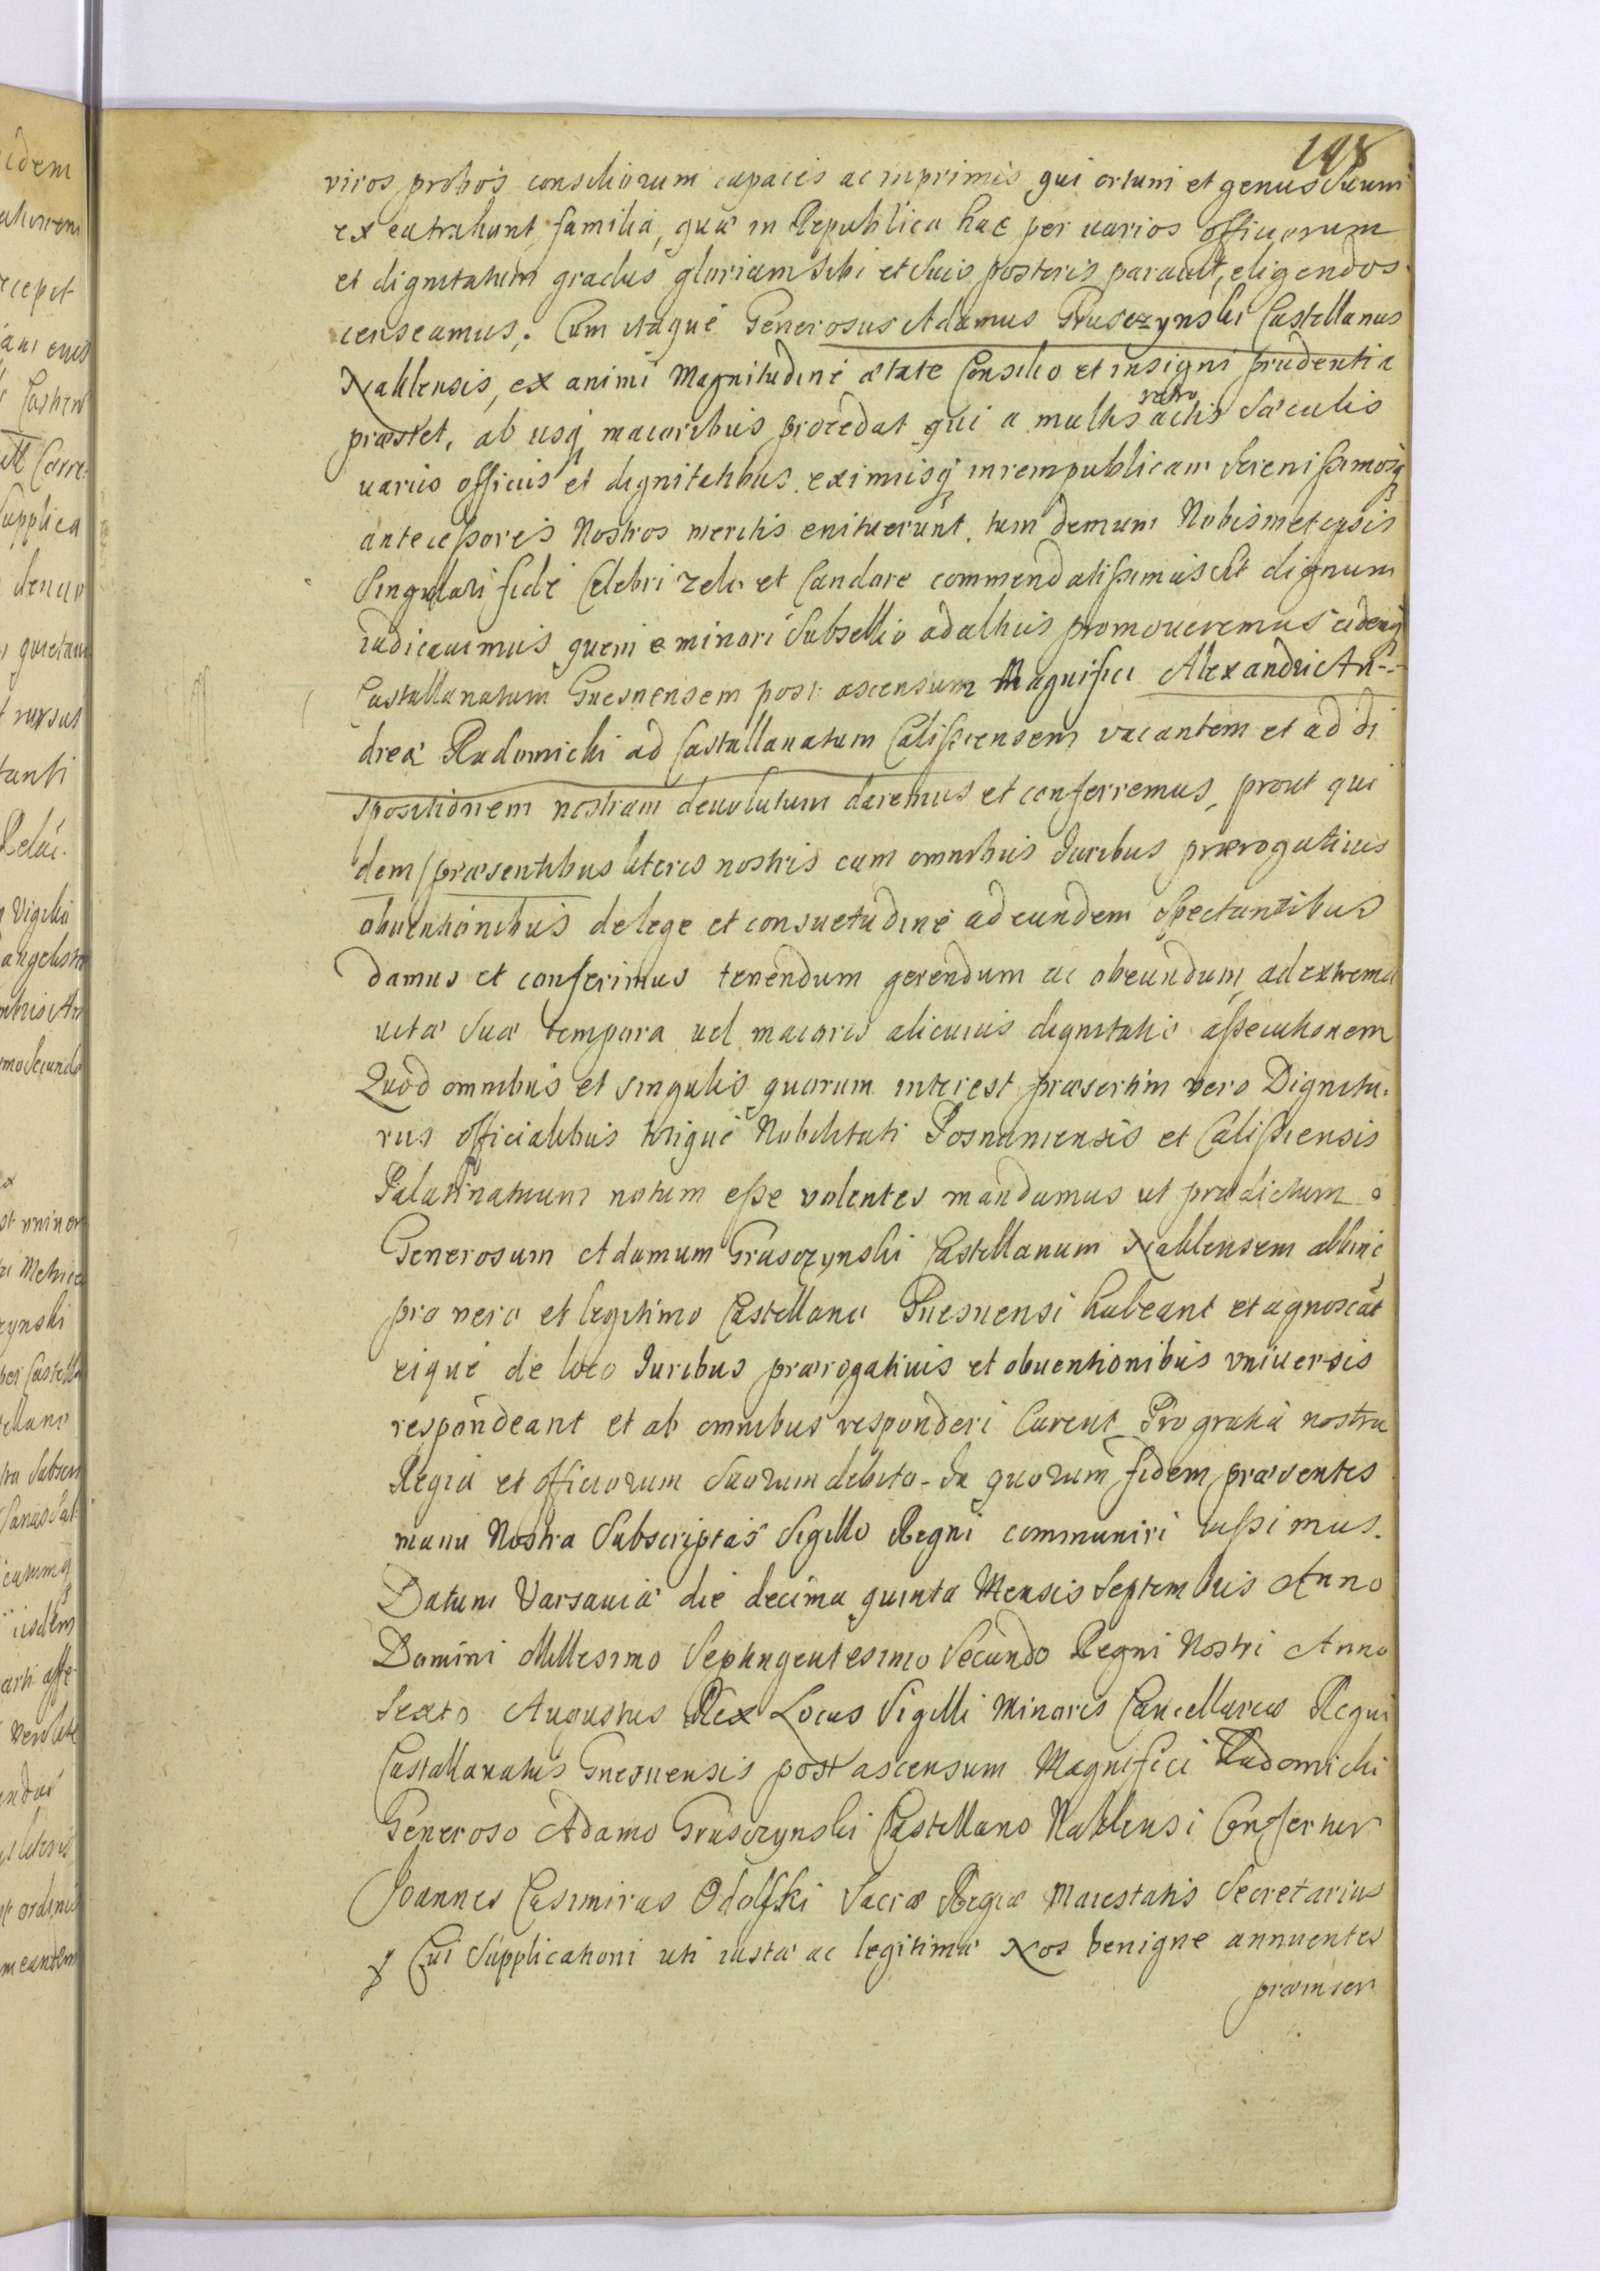 198
viros probos consiliorum capaces ac inprimis qui ortum et genus suum
ex ea trahunt familia, quæ in Republica hac per varios officiorum
et dignitatum gradus gloriam sibi et suis posteris parauit, eligendos
censeamus. Cum itaque Generosus Adamus Grusczynski Castellanus
Naklensis, ex animi Magnitudine ætate Consilio et insigni prudentia
præstet, ab usq maioribus procedat qui a multis retro actis sæculis
uariis officiis et dignitatibus eximiisq in rempublicam Serenissimosq
antecessores Nostros meritis enituerunt, tum demum Nobismet ipsis
Singulari fide Celebri zelo et Candore commendatissimus sit dignum
iudicauimus quem e minori Subsellio ad altius promoueremus eidemq
Castellanatum Gnesnensem post ascensum Magnifici Alexandri An-
dreæ Radomicki ad Castellanatum Calissiensem vacantem et ad di
spositionem nostram deuolutum daremus et conferremus, prout qui
dem præsentibus literis nostris cum omnibus Juribus prærogatiuis
obuentionibus de lege et consuetudine ad eundem spectantibus
damus et conferimus tenendum gerendum ac obeundum, ad extrema
uitæ suæ tempora uel maioris alicuius dignitatis assecutionem
Quod omnibus et singulis quorum interest præsertim vero Dignita-
riis officialibus totique Nobilitati Posnaniensis et Calissiensis
Palatinatuum notum esse volentes mandamus ut prædictum
Generosum Adamum Grusczynski Castellanum Naklensem abhinc
pro vero et legitimo Castellano Gnesnensi habeant et agnoscāt
eique de loco Juribus prærogatiuis et obuentionibus vniuersis
respondeant et ab omnibus responderi Curent Pro gratia nostra
Regia et officiorum Suorum debito. In quorum fidem præsentes
manu Nostra Subscriptas Sigillo Regni communiri iussimus.
Datum Varsauiæ die decima quinta Mensis Septembris Anno
Domini Millesimo Septingentesimo Secundo Regni Nostri Anno
Sexto Augustus Rex Locus Sigilli Minoris Cancellariæ Regni
Castellanatus Gnesnensis post ascensum Magnifici Radomicki
Generoso Adamo Grusczynski Castellano Naklensi Confertur
Joannes Casimirus Odolski Sacræ Regiæ Maiestatis Secretarius
Cui Supplicationi uti iustæ ac legitimæ Nos benigne annuentes